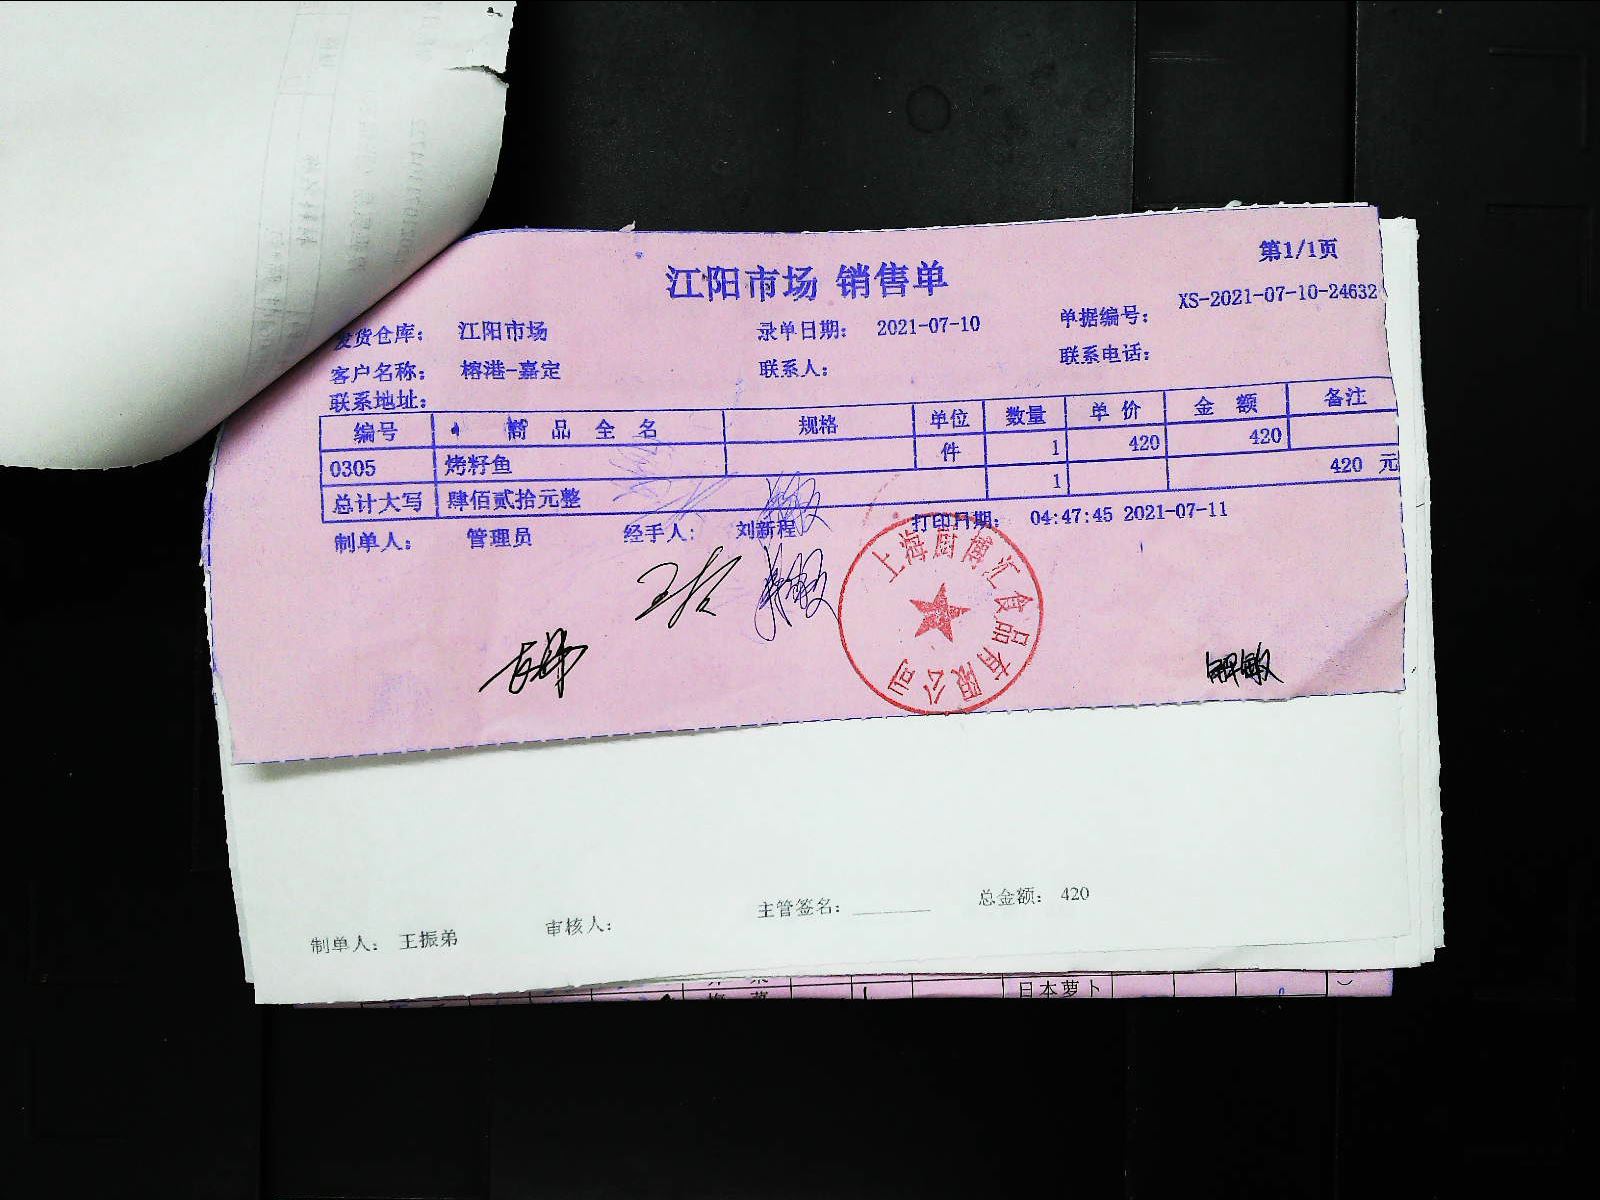 第1/1页
江阳市场 销售单
发货仓库: 江阳市场 录单日期: 2021-07-10 单据编号: XS-2021-07-10-24632
客户名称: 榕港-嘉定 联系人: 联系电话:
联系地址:
编号 商品全名 规格 单位 数量 单价 金额 备注
0305 烤籽鱼 件 1 420 420
总计大写 肆佰贰拾元整 1 420 元
制单人: 管理员 经手人: 刘新程 打印日期: 04:47:45 2021-07-11
上海厨博汇食品有限公司
制单人: 王振弟 审核人: 主管签名: 总金额: 420
日本萝卜